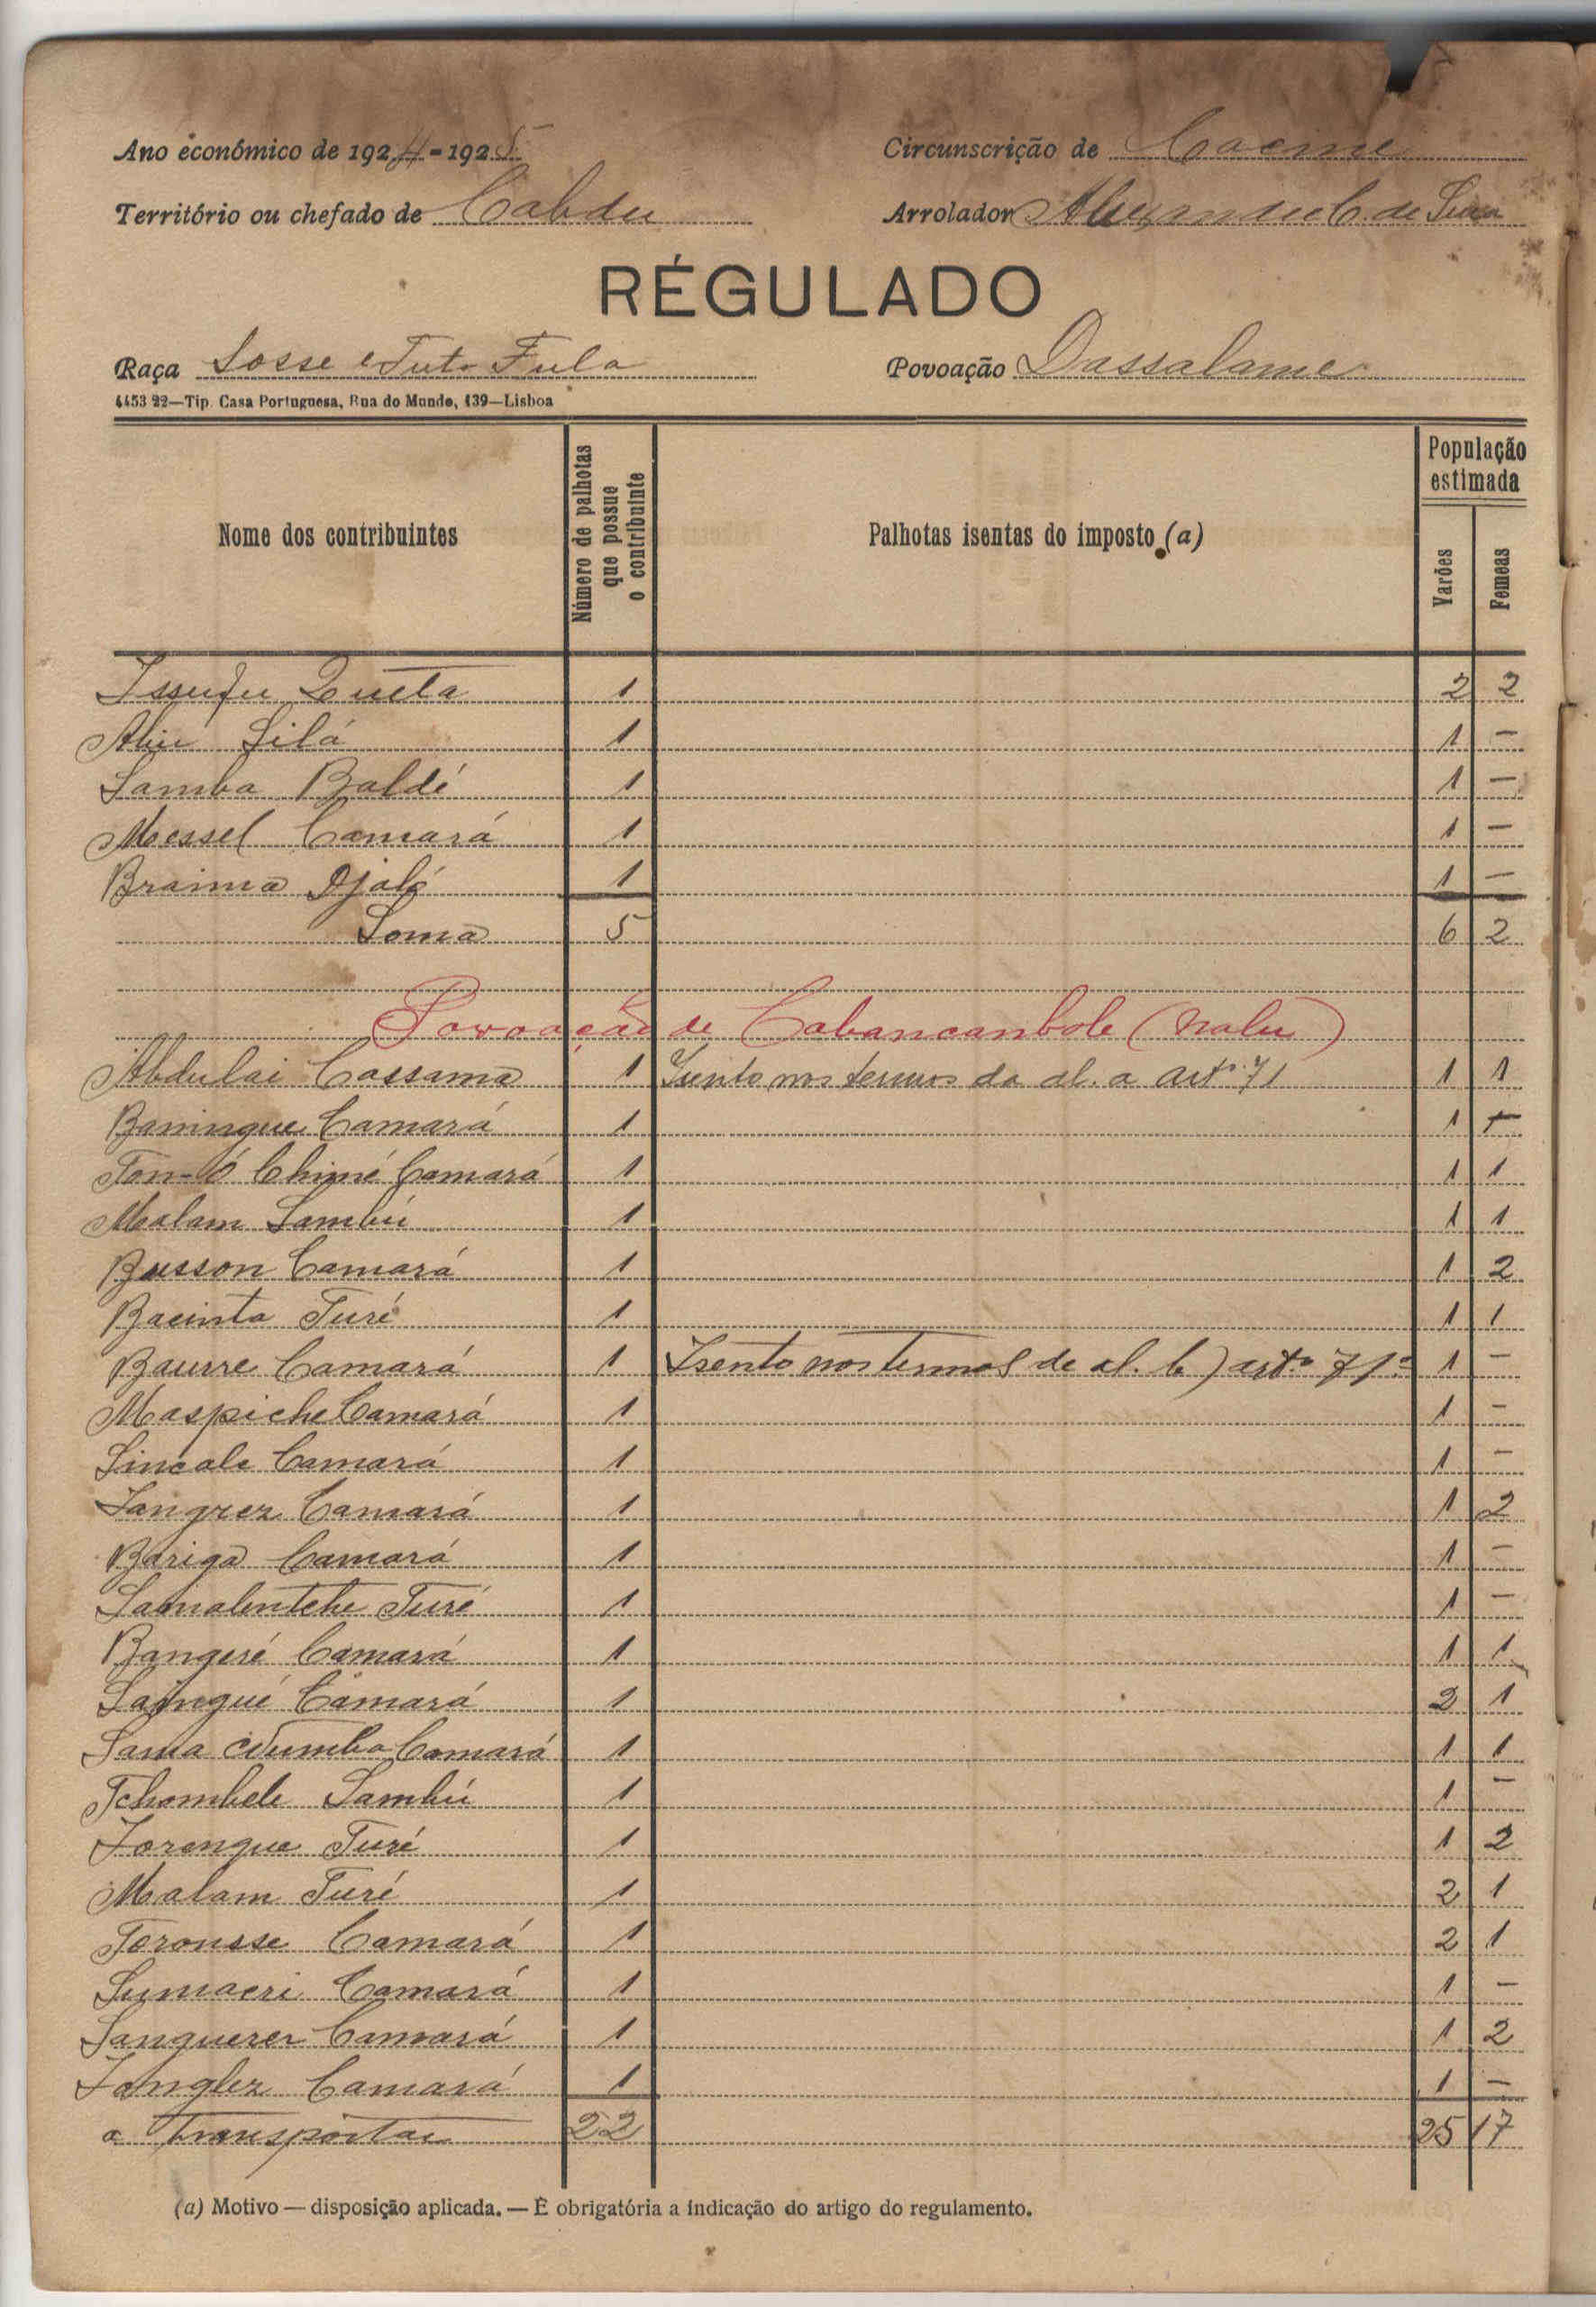 Ano económico de 1924-1925 Circunscrição de Cacine
Território ou chefado de Cabdu Arrolador C. de
RÉGULADO
Raça Sosse e Futa Fula Povoação Dassalame
4453 22—Tip. Casa Portuguesa, Rua do Mundo, 139—Lisboa
Nome dos contribuintes Número de palhotas que possue o contribuinte Palhotas isentas do imposto (a) População estimada Varões Femeas
Issufu Queta 1 2 2
Aliu Silá 1 1 -
Samba Baldé 1 1 -
Messel Camará 1 1 -
Braima Djaló 1 1 -
Soma 5 6 2
Povoação de Cabancanbole (Nalu)
Abdulai Cassama 1 Isento nos termos da al. a artº 71 1 1
Baningue Camará 1 1
Ton-ó Chimé Camará 1 1 1
Malam Sambú 1 1 1
Busson Camará 1 1 2
Bacinta Turé 1 1 1
Baurre Camará 1 Isento nos termos de al. b) artº 71º 1 -
Maspiche Camará 1 1 -
Sincale Camará 1 1 -
Camará 1 1 2
Bariga Camará 1 1 -
Turé 1 1 -
Bangeré Camará 1 1 1
Saingué Camará 1 2 1
Sama Camará 1 1 1
Tchombele Sambú 1 1 -
Forengue Turé 1 1 2
Malam Turé 1 2 1
Torousse Camará 1 2 1
Sumacri Camará 1 1 -
Sanguerer Camará 1 1 2
Camará 1 1 -
a Transportar 22 25 17
(a) Motivo — disposição aplicada. — É obrigatória a indicação do artigo do regulamento.